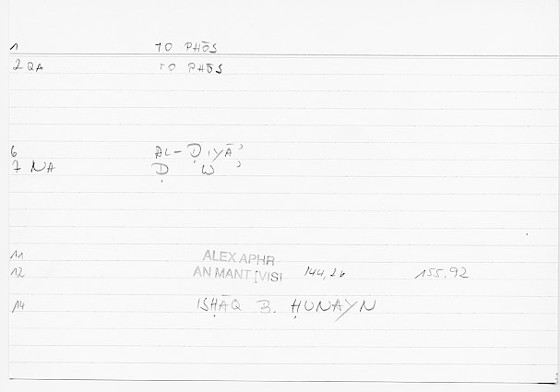 1 TO PHŌS
2 QA TO PHŌS
6 AL-ḌIYĀʾ
7 NA Ḍ W ʾ
11 ALEX APHR
12 AN MANT [VISI 144,26 155,92
14 ISḤĀQ B. ḤUNAYN